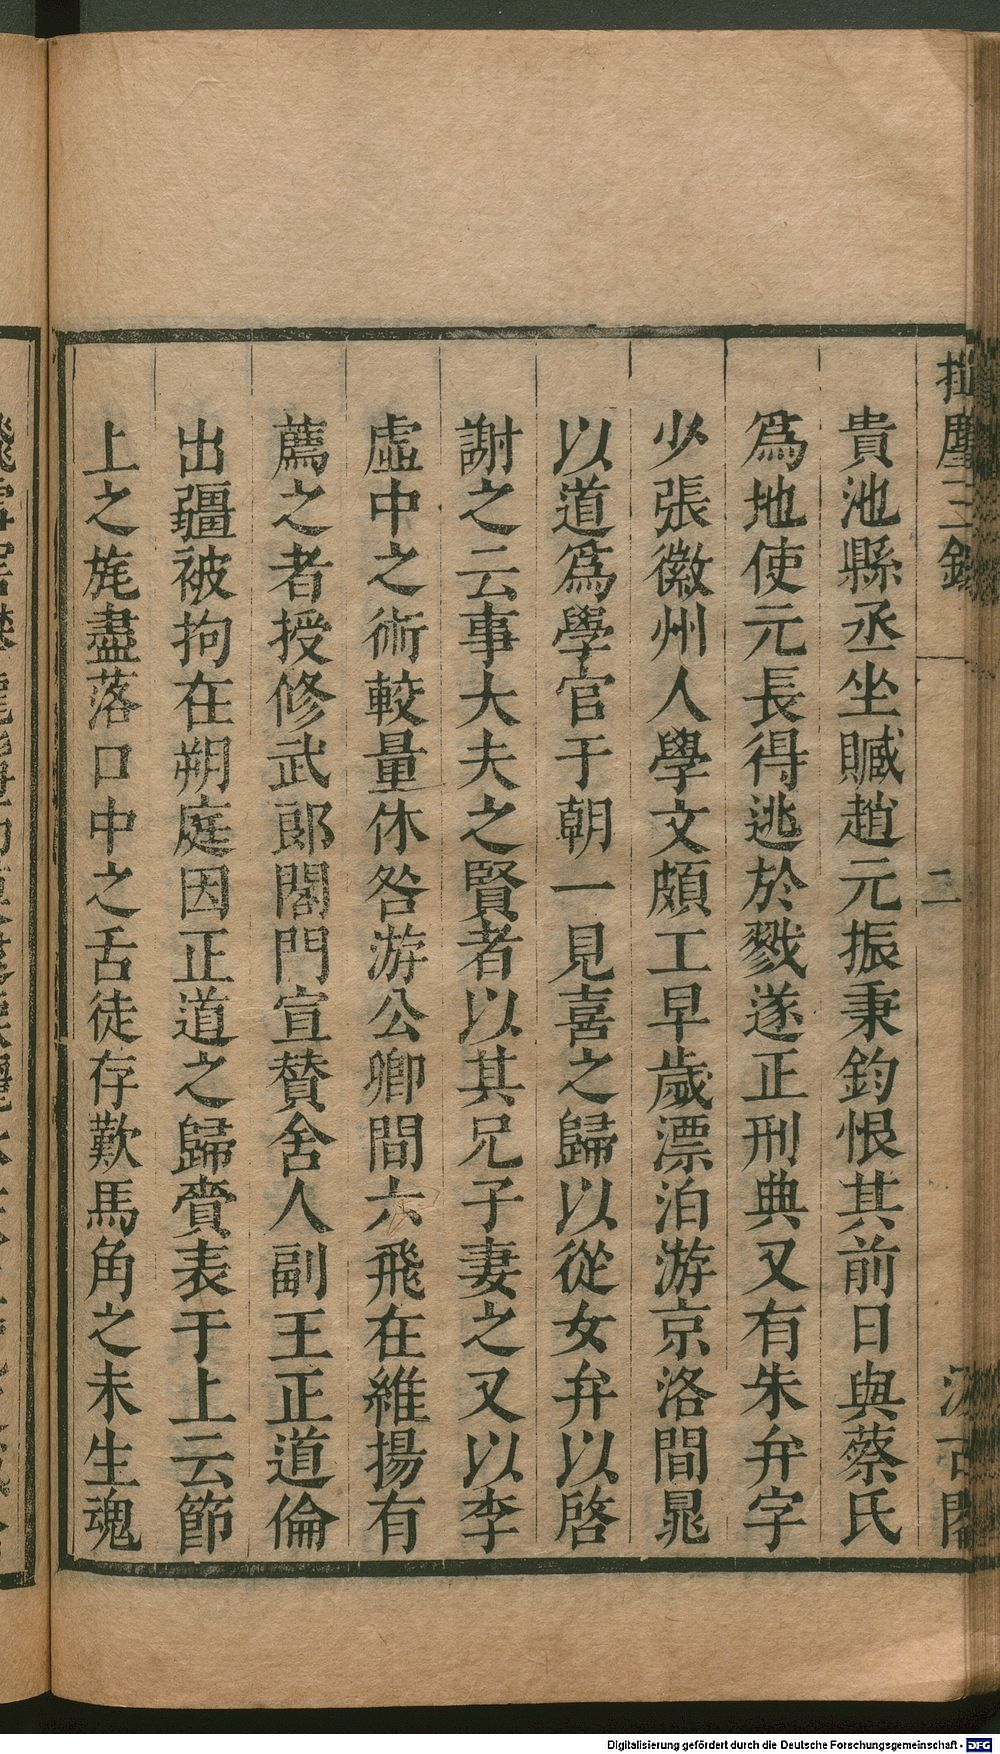 塵三錄
二
貴池縣丞坐贓趙元振秉鈞恨其前日與蔡氏
爲地使元長得逃於戮遂正刑典又有朱弁字
少張徽州人學文頗工早歲漂泊游京洛間晁
以道爲學官于朝一見喜之歸以從女弁以啓
謝之云事大夫之賢者以其兄子妻之又以李
虛中之術較量休咎游公卿間六飛在維揚有
薦之者授修武郎閤門宣贊舍人副王正道倫
出疆被拘在朔庭因正道之歸賫表于上云節
上之旄盡落口中之舌徒存歎馬角之未生魂
Digitalisierung gefördert durch die Deutsche Forschungsgemeinschaft - DFG